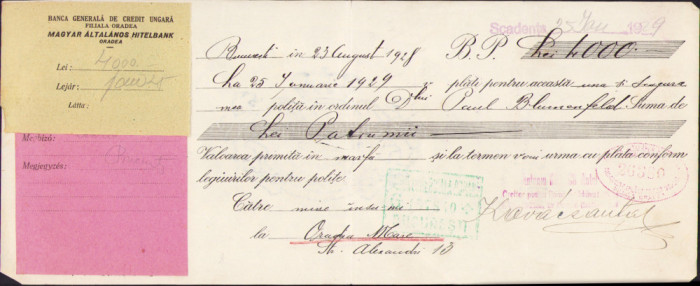 BANCA GENERALĂ DE CREDIT UNGARĂ
FILIALA ORADEA
MAGYAR ÁLTALÁNOS HITELBANK
ORADEA
Lei: 4000
Lejár:
Látta:
Megbizó:
Megjegyzés:
Scadența 25 Ian 1929
București în 23 August 1928 B. P. Lei 4000
La 25 Ianuarie 1929 plăti pentru aceasta una și singura
mea poliță în ordinul Dlui Paul Blumenfeld Suma de
Lei Patrumii
Valoarea primită în marfă și la termen voi urma cu plata conform
legiuirilor pentru polițe.
Către mine însu-mi
la Oradea Mare
Str. Alexandri 10
BUCUREȘTI
Kovács Antal